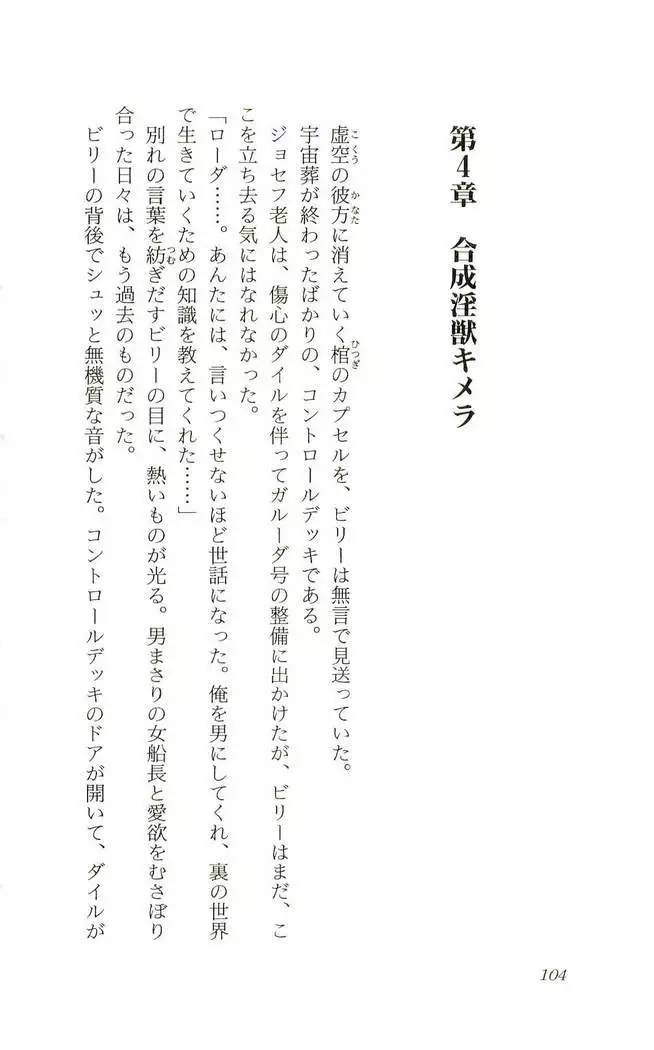 第4章　合成淫獣キメラ
虚空の彼方に消えていく棺のカプセルを、ビリーは無言で見送っていた。
こくう
かなた
ひつぎ
宇宙葬が終わったばかりの、コントロールデッキである。
ジョセフ老人は、傷心のダイルを伴ってガルーダ号の整備に出かけたが、ビリーはまだ、こ
こを立ち去る気にはなれなかった。
「ローダ……。あんたには、言いつくせないほど世話になった。俺を男にしてくれ、裏の世界
で生きていくための知識を教えてくれた……」
別れの言葉を紡ぎだすビリーの目に、熱いものが光る。男まさりの女船長と愛欲をむさぼり
つむ
合った日々は、もう過去のものだった。
ビリーの背後でシュッと無機質な音がした。コントロールデッキのドアが開いて、ダイルが
104